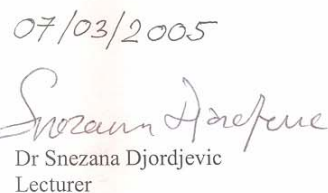 07/03/2005
Snezana Djordjevic
Dr Snezana Djordjevic
Lecturer